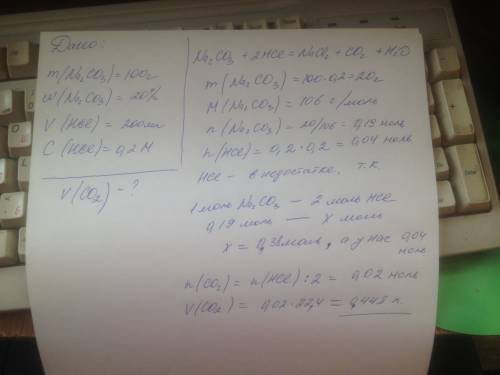 Дано:
m(Na₂CO₃)=100г
w(Na₂CO₃)=20%
V(HCl)=200мл
C(HCl)=0,2 М
V(CO₂)-?
Na₂CO₃ + 2HCl = NaCl₂ + CO₂ + H₂O
m(Na₂CO₃)=100·0,2=20г
M(Na₂CO₃)=106 г/моль
n(Na₂CO₃)=20/106=0,19 моль
n(HCl)=0,2·0,2=0,04 моль
HCl - в недостатке, т.к.
1 моль Na₂CO₃ - 2 моль HCl
0,19 моль — X моль
x = 0,38 моль, а у нас 0,04
моль
n(CO₂) = n(HCl):2 = 0,02 моль
V(CO₂) = 0,02·22,4 = 0,448 л.